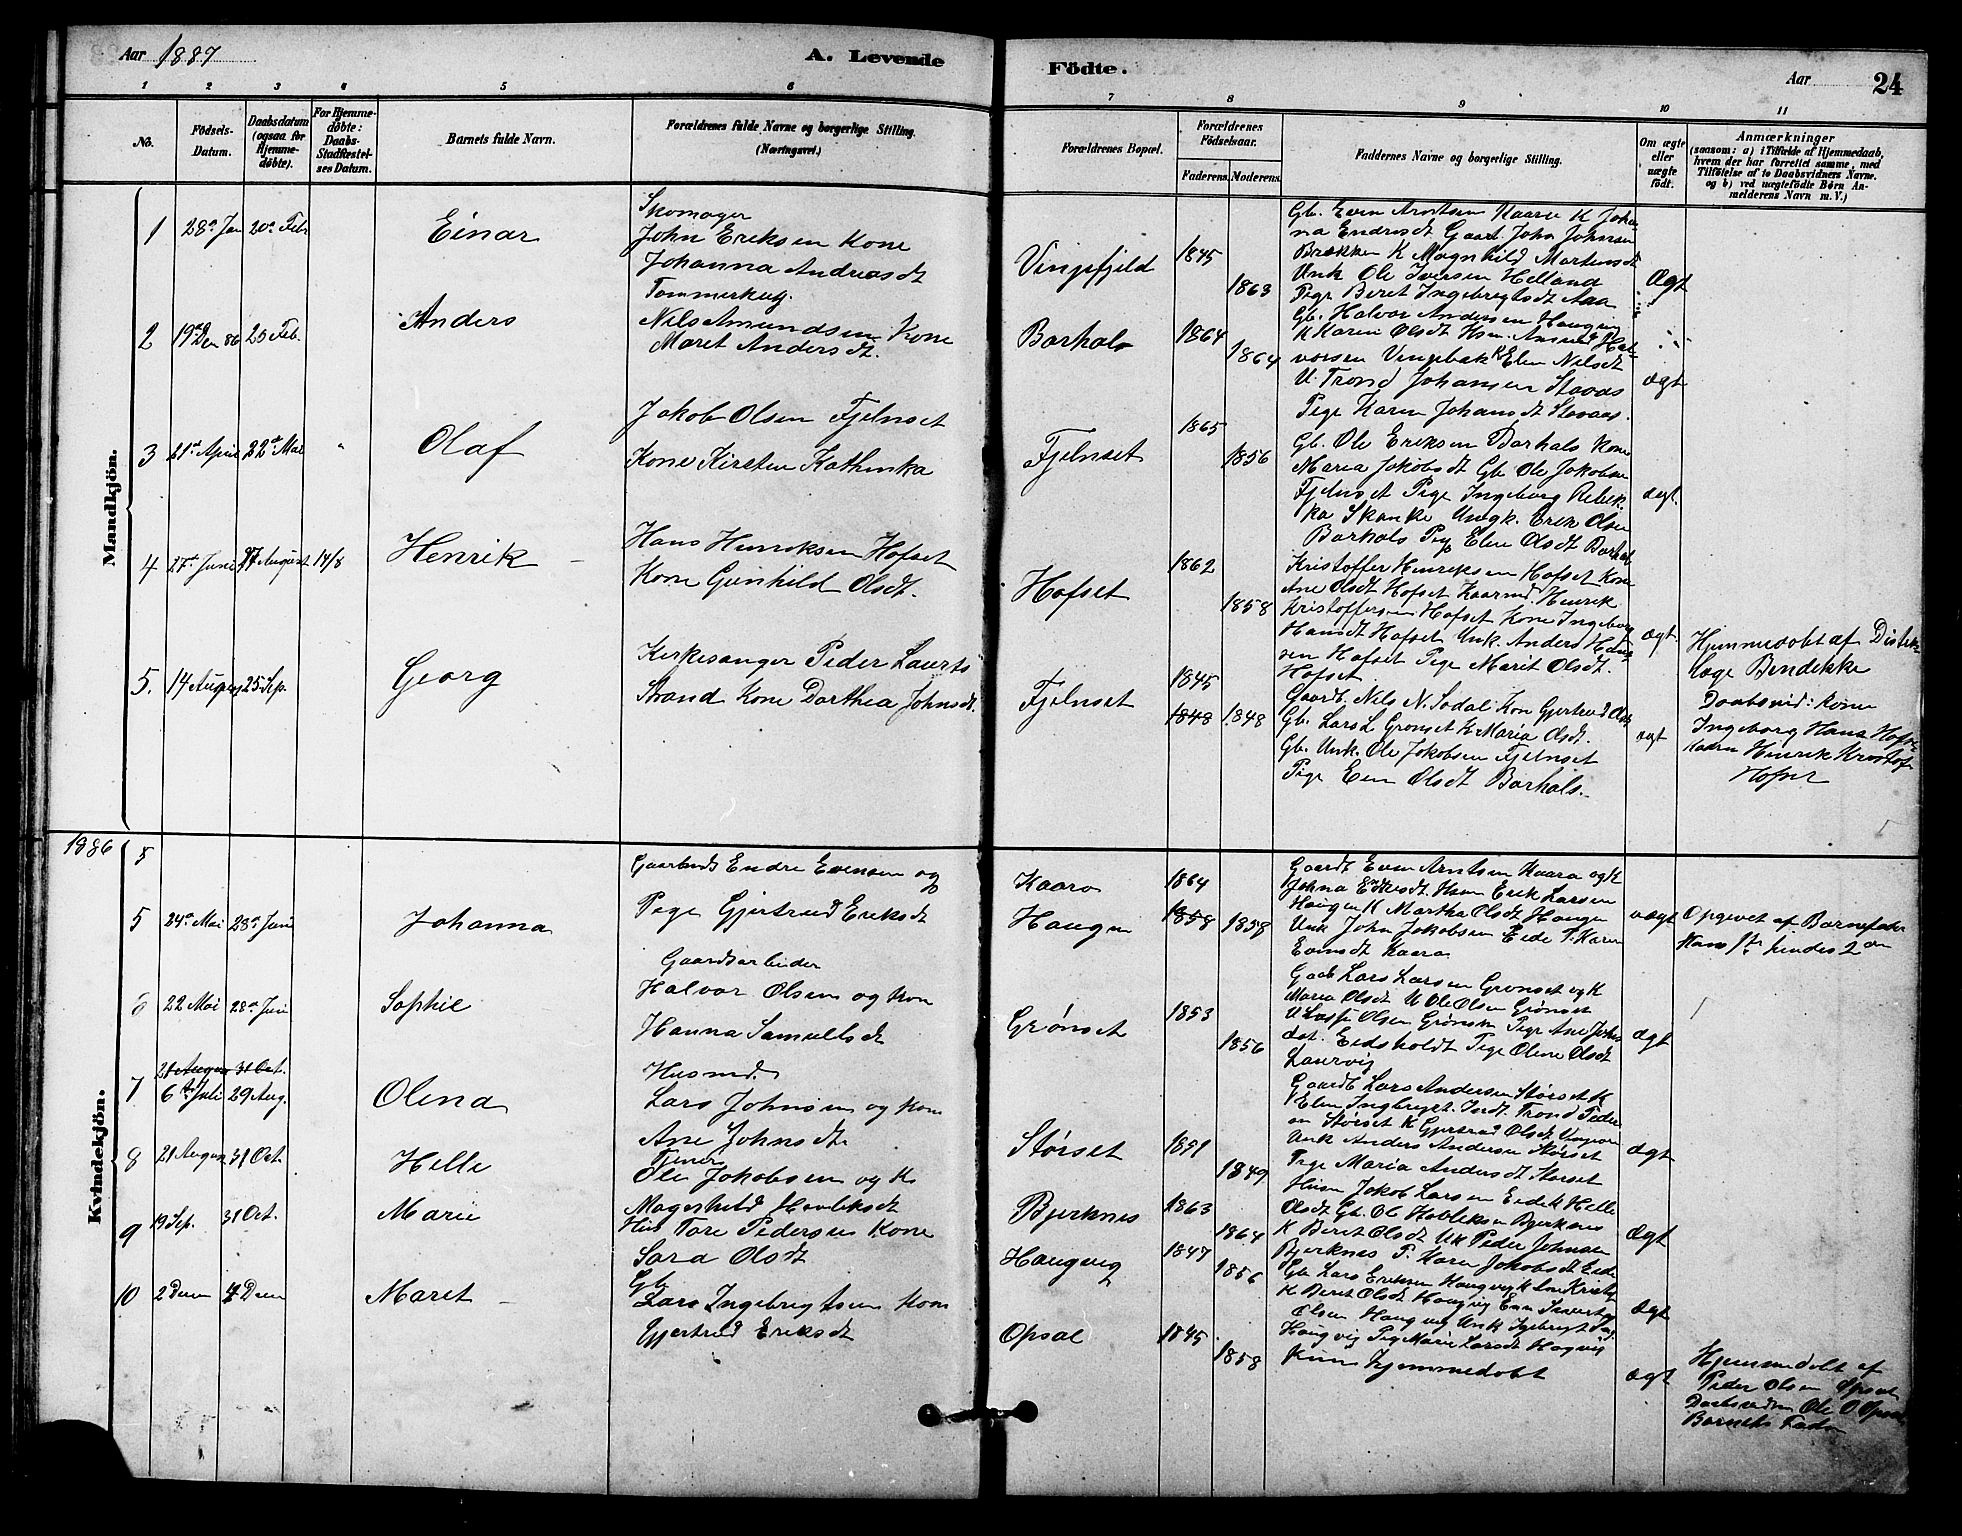 Aar 1887
A. Levende
Födte.
Aar
24
1 2 3 4 5 6
7 8 9 10 11
No.
Födsels-
Datum.
Daabsdatum
(ogsaa for
Hjemme-
döbte).
For Hjemme-
döbte:
Daabs-
Stadfæstel-
ses Datum.
Barnets fulde Navn.
Forældrenes fulde Navne og borgerlige Stilling.
(Næringsvei.)
Forældrenes Bopæl.
Forældrenes
Födselsaar.
Faderens. Moderens.
Faddernes Navne og borgerlige Stilling.
Om ægte
eller
uægte
födt.
Anmærkninger
(saasom: a) i Tilfælde af Hjemmedaab,
hvem der har forrettet samme, med
Tilföielse af to Daabsvidners Navne.
og b) ved uægtefödte Börn An-
melderens Navn m. V.)
Mandkjön.
1 28de Jan 20de Feb
Einar
Skomager
John Eriksen Kone
Johanna Andreasdt
Vingefjeld
1845
1863
Gb. Even Arntsen Kaara K Joha
na Endresdt Gaard John Johnsen
Brækken K Magnhild Martensdt
Unk Ole Iversen Helland
Pige Beret Ingebrigtsdt Aaa
Ægt
2 19de Den 86 20 Feb.
Anders
Tommerhug.
Nils Amundsen Kone
Maret Andersdt.
Barhals
1864
1864
Gb. Halvor Andersen Haugvig
K Karen Olsdt Hsm. Hal-
vorsen Vingebak K Elen Nilsdt
U. Trond Johansen Stavas
Pige Karen Johansdt Stavaas.
ægt
3 21st April 22de Mai "
Olaf
Jakob Olsen Fjelnset
Kone Kirsten Kathinka
Fjelnset
1865
1856
Gb. Ole Eriksen Barhals Kone
Maria Jakobsdt Gb Ole Jakobsen
Fjelnset Pige Ingeborg Rebek-
ka Skanke Ungk. Erik Olsen
Barhals Pige Elen Olsdt Barhals
ægt.
4 27de Juni 27 August 14/8
Henrik
Hans Henriksen Hofset
Kone Gunhild Olsdt.
Hofset
1862
1858
Kristoffer Henriksen Hofset Kone
Ane Olsdt Hofset Kaarmd Henrik
Kristoffersen Hofset Kone Ingeborg
Hansdt Hofset Unk Anders Han
sen Hofset Pige Marit Olsdt.
Hofset
ægt
Hjemmedobt af Distrik
læge Bendekke
Daabsvid: Kone
Ingeborg Hans Hofset
Kaarm Henrik Kristof
Hofset
5. 14 August 25 Sep.
Georg
Kirkesanger Peder Laurts
Strand Kone Dorthea Johnsdt.
Fjelnset
1845
1848 1848
Gaardb. Nils N. Sodal Kon Gjertrud Olsdt
Gb. Lars L Gronset K Maria Olsdt.
Gb. Unk. Ole Jakobsen Fjelnset
Pige Elen Olsdt Barhals.
ægt
1886
Kvindekjön.
5
5 24de Mai 28de Juni
Johanna
Gaarbruds Endre Evensen og
Pige Gjertrud Eriksdt
Kaara
Haugen
1864
1858 1858
Gaardb Even Arntsen Kaara og K
Johna Endresdt. Hsm Erik Larsen
Haugen K Martha Olsdt Haugen
Unk John Jakobsen Eide P. Karen
Evensdt Kaara
uægt
Opgivet af Barnefader
Hans 1ste hendes 2den
6 22 Mai 28de Juni
Sophie
Gaardsarbeider
Halvor Olsen og Kon
Hanna Samuelsdt
Grønset
1853
1856
Gaab Lars Larsen Gronset og K
Maria Olsdt U Ole Olsen Grønset
U Lasse Olsen Grønset Pige Ane Johns
dat. Eidsholdt Pige Oline Olsdt
Laurvig
ægt
21 August 31 Oct.
7 6te Juli 29 Aug.
Olena
Husmd.
Lars Johnsen og Kon
Ane Johnsdt
Størset
1851
1849
Gaardb Lars Andersen Størset K
Elen Ingbrigt. Indt. Trond Peder
sen Størset K Gjertrud Olsdt
Unk Anders Andersen Størset
Pige Maria Andersdt Størset
ægt
8 21 August 31 Oct.
Helle
Tjener
Ole Jakobsen og K
Magnhild Havleksdt
Bjerknes
1863
1864
Husm Jakob Larsen Eide K Helle
Olsdt Gb. Ole Havleksen Bjerknes
K Beret Olsdt Uk Peder Johnsen
Bjerknes P. Karen Jakobsdt Eide
ægt
9 19 Sep. 31 Oct.
Marie
Hus Tore Pedersen Kone
Sara Olsdt
Haugvig
1847
1856
Gb. Lars Eriksen Haugvig K
K Beret Olsdt Haugvig
Olsen Haugvig Unk Ingebrigt
Haugvig Pige Marie Larsdt Hagvig
ægt
10 2 Deen 4 Deen
Maret
Gb
Lars Ingebrigtsen Kone
Gjertrud Eriksdt
Opsal
1845
1858
Kun hjemmedobt
ægt
Hjemmedobt af
Peder Olsen Opsal
Daabsvidn Ole O Opsal
Barnets Fader